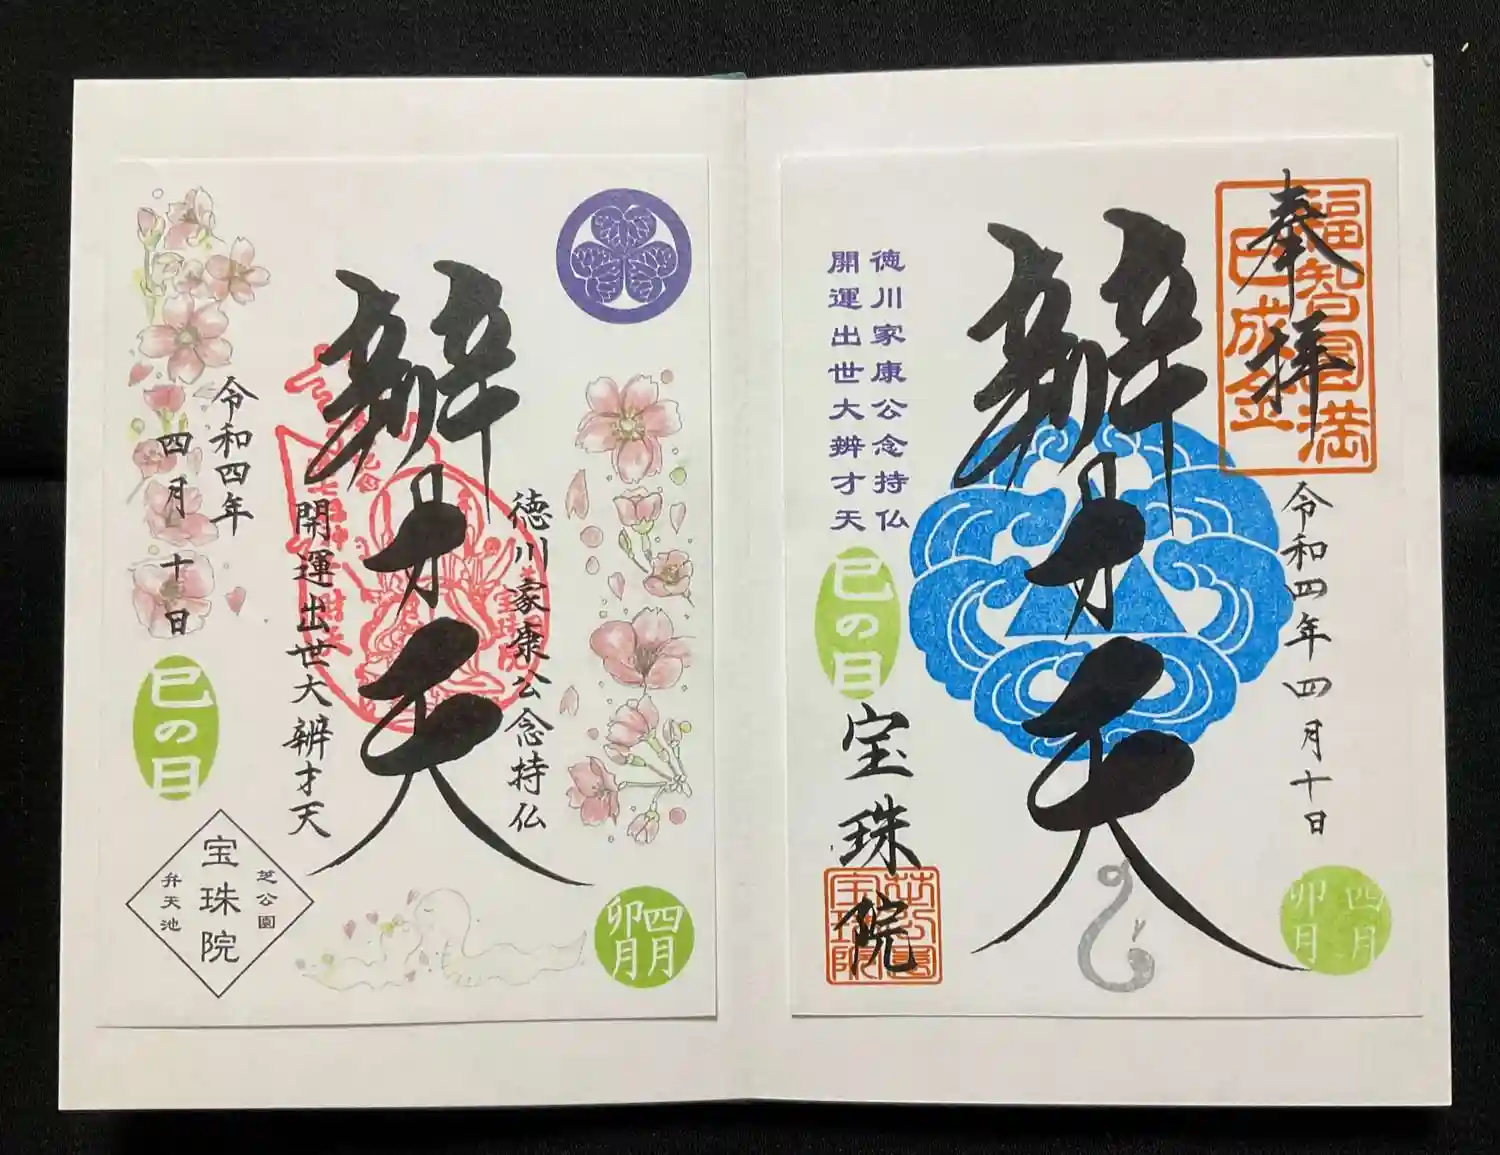 奉拝
福智円満
巳成金
令和四年四月十日
四月
卯月
辨才天
徳川家康公念持仏
開運出世大辨才天
巳の日
宝珠院
辨才天
徳川家康公念持仏
開運出世大辨才天
令和四年
四月十日
巳の日
四月
卯月
芝公園
宝珠院
弁天池